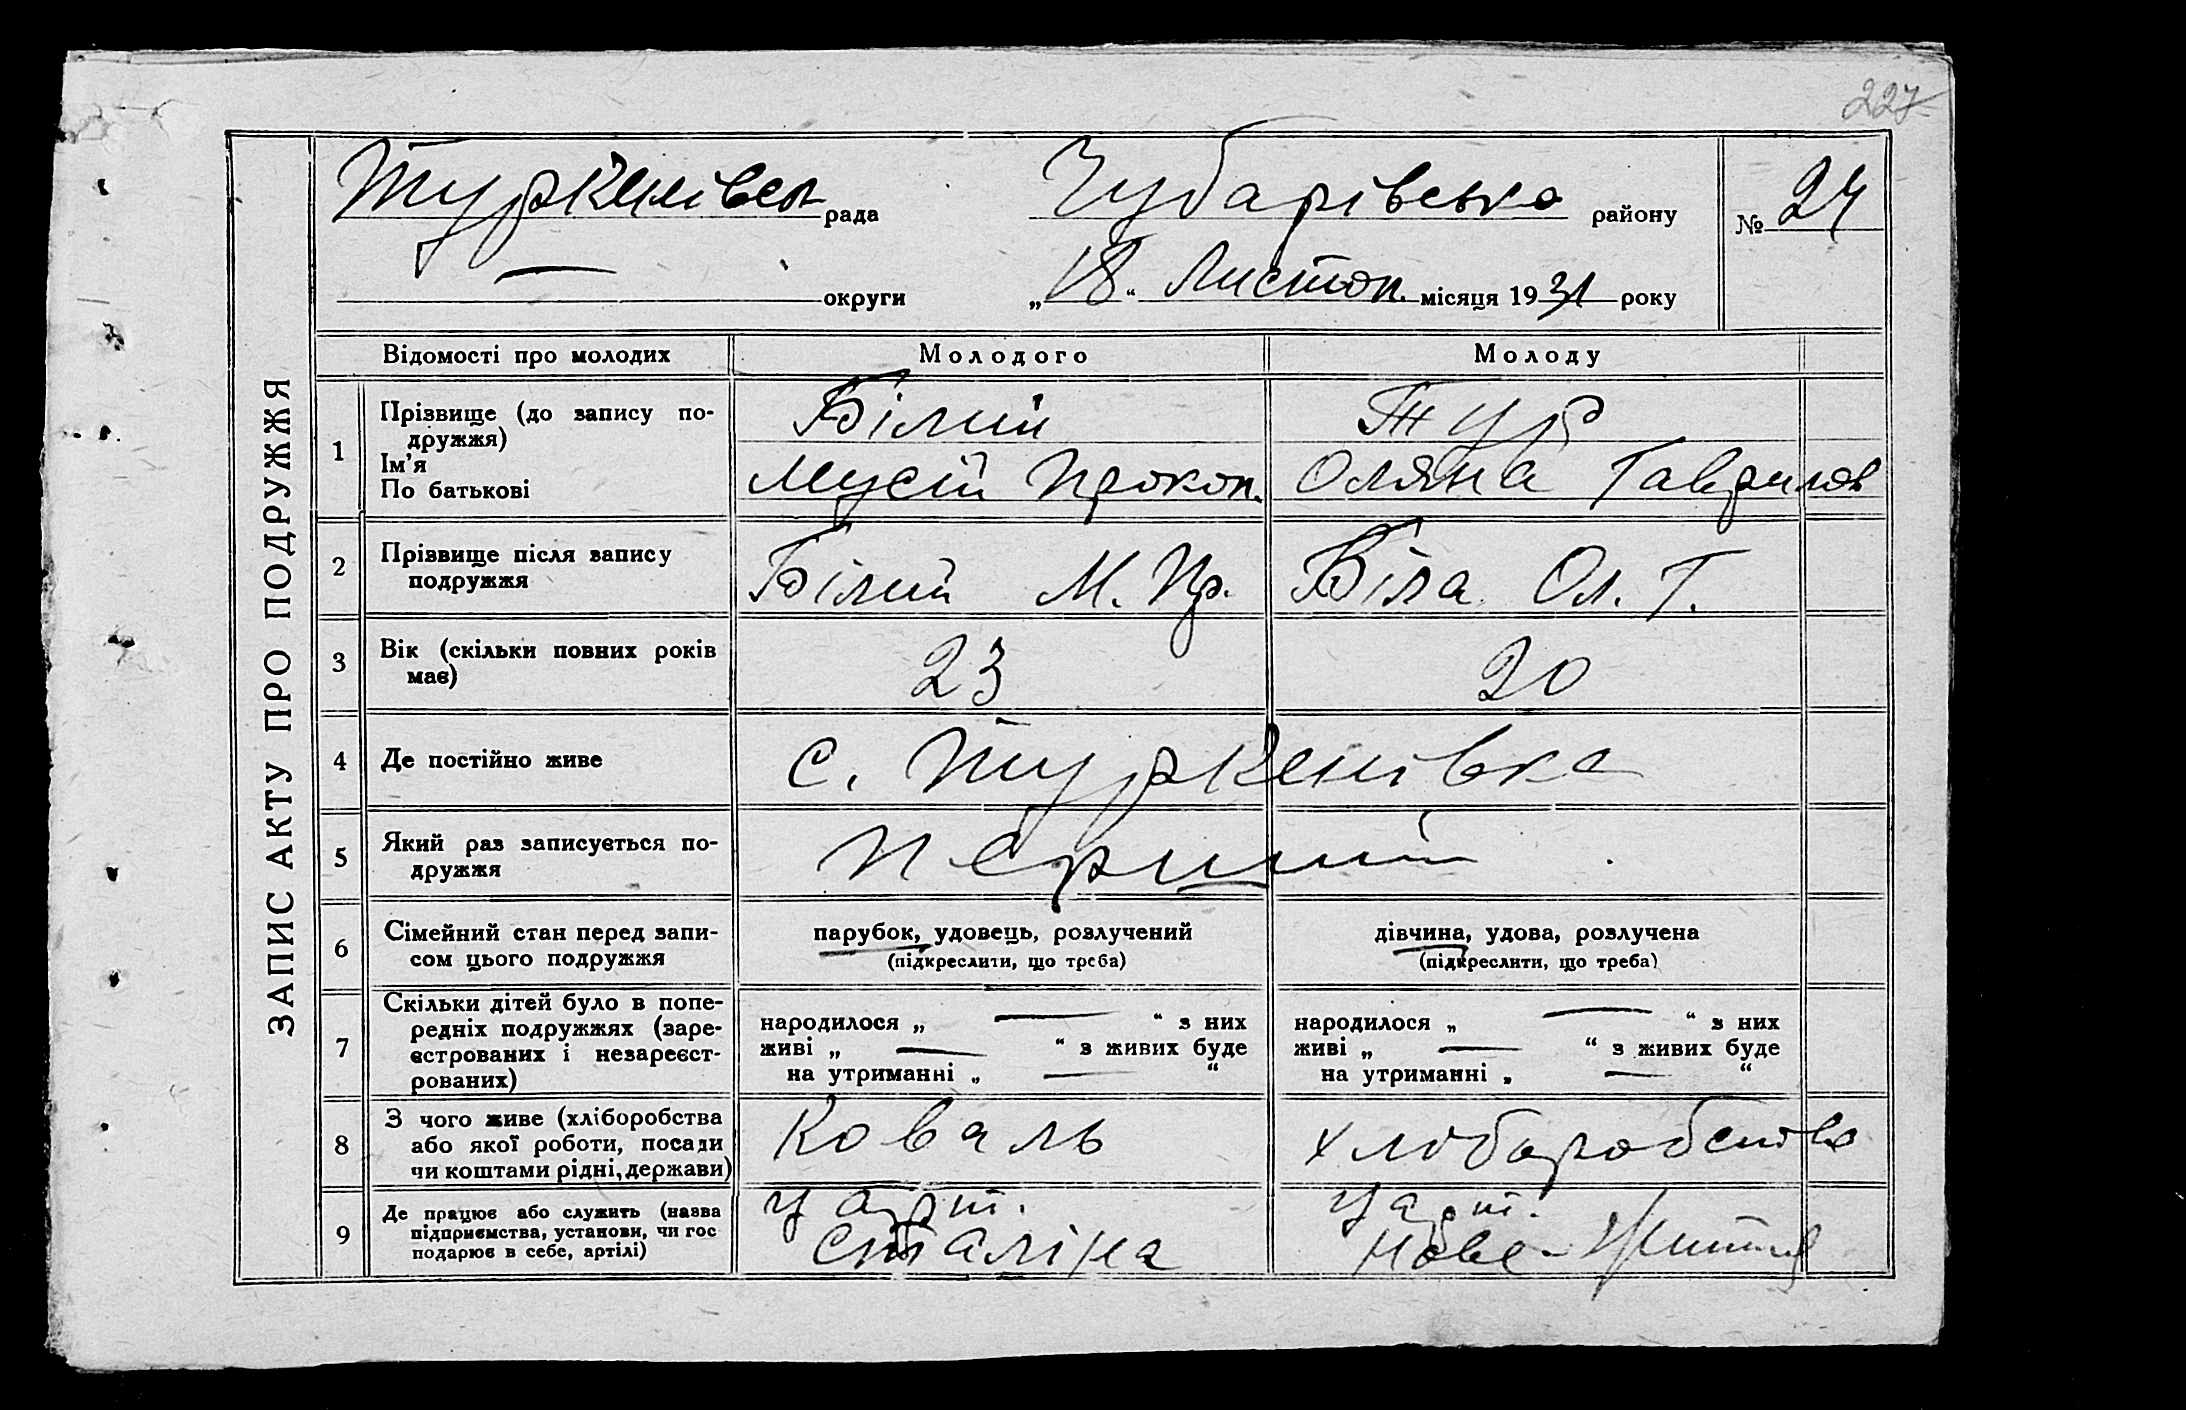 227
ЗАПИС АКТУ ПРО ПОДРУЖЖЯ
Туркенівсь рада Чубарівсько району № 24
— округи „18“ Листоп. місяця 1931 року
Відомості про молодих Молодого Молоду
1 Прізвище (до запису по-
дружжя)
Ім'я
По батькові
Білий
Мусій Прокоп.
Тур
Оляна Гаврилов
2 Прізвище після запису
подружжя
Білий М. Пр.
Біла Ол. Г.
3 Вік (скільки повних років
має)
23
20
4 Де постійно живе
с. Туркенівка
5 Який раз записується по-
дружжя
перший
6 Сімейний стан перед запи-
сом цього подружжя
парубок, удовець, розлучений
(підкреслити, що треба)
дівчина, удова, розлучена
(підкреслити, що треба)
7 Скільки дітей було в попе-
редніх подружжях (заре-
єстрованих і незареєст-
рованих)
народилося „ — “ з них
живі „ — “ з живих буде
на утриманні „ — “
народилося „ — “ з них
живі „ — “ з живих буде
на утриманні „ — “
8 З чого живе (хліборобства
або якої роботи, посади
чи коштами рідні, держави)
Коваль
хлоборобство
9 Де працює або служить (назва
підприємства, установи, чи гос
подарює в себе, артілі)
у арт.
Сталіна
у арт.
Нове-Життя